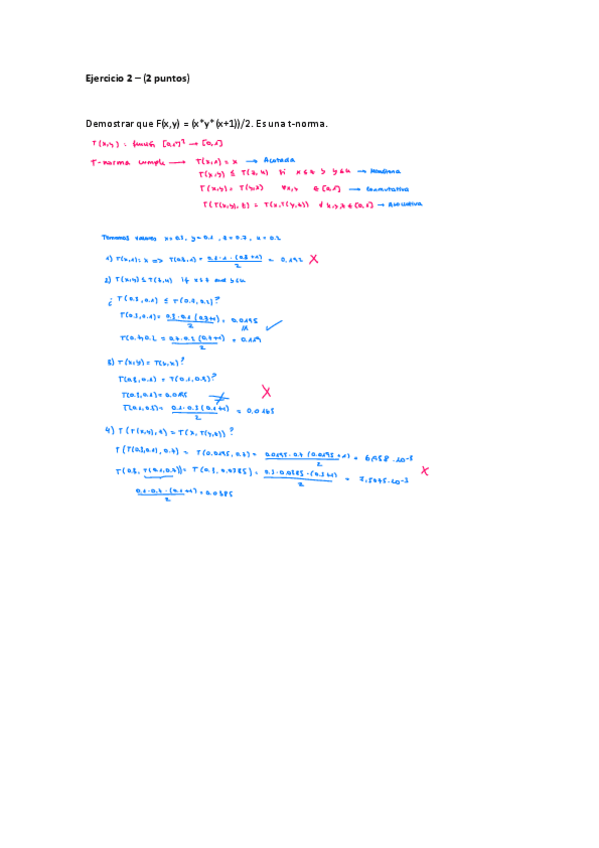 Ejercicio 2 – (2 puntos)
Demostrar que F(x,y) = (x*y*(x+1))/2. Es una t-norma.
T(x,y) : [0,1]² → [0,1]
T-norma cumple → T(x,1) = x → Acotada
T(x,y) ≤ T(z,u) si x≤z y y≤u → Monótona
T(x,y) = T(y,x) ∀x,y ∈ [0,1] → Conmutativa
T(T(x,y),z) = T(x,T(y,z)) ∀ x,y,z ∈ [0,1] → Asociativa
Tomamos valores x=0.3, y=0.1, z=0.7, u=0.2
1) T(x,1)=x => T(0.3,1) = = 0,192 X
2) T(x,y) ≤ T(z,u) if x≤z and y≤u
¿ T(0.3,0.1) ≤ T(0.7,0.2)?
T(0.3,0.1) = 0.3·0.1(0.3+1)/2 = 0.0195
T(0.7,0.2 = 0.7·0.2(0.7+1)/2 = 0.119
3) T(x,y) = T(y,x)?
T(0.3,0.1) = T(0.1,0.3)?
T(0.3,0.1) = 0.0195 ≠ X
T(0.1,0.3) = 0.1·0.3(0.1+1)/2 = 0.0165
4) T(T(x,y),z) = T(x,T(y,z))?
T(T(0.3,0.1),0.7) = T(0.0195,0.7) = 0.0195·0.7(0.0195+1)/2 = 6,958·10-3
T(0.3,T(0.1,0.7)) = T(0.3,0.0385) = 0.3·0.0385·(0.3+1)/2 = 7,5075·10-3 X
0.1·0.7·(0.1+1)/2 = 0.0385